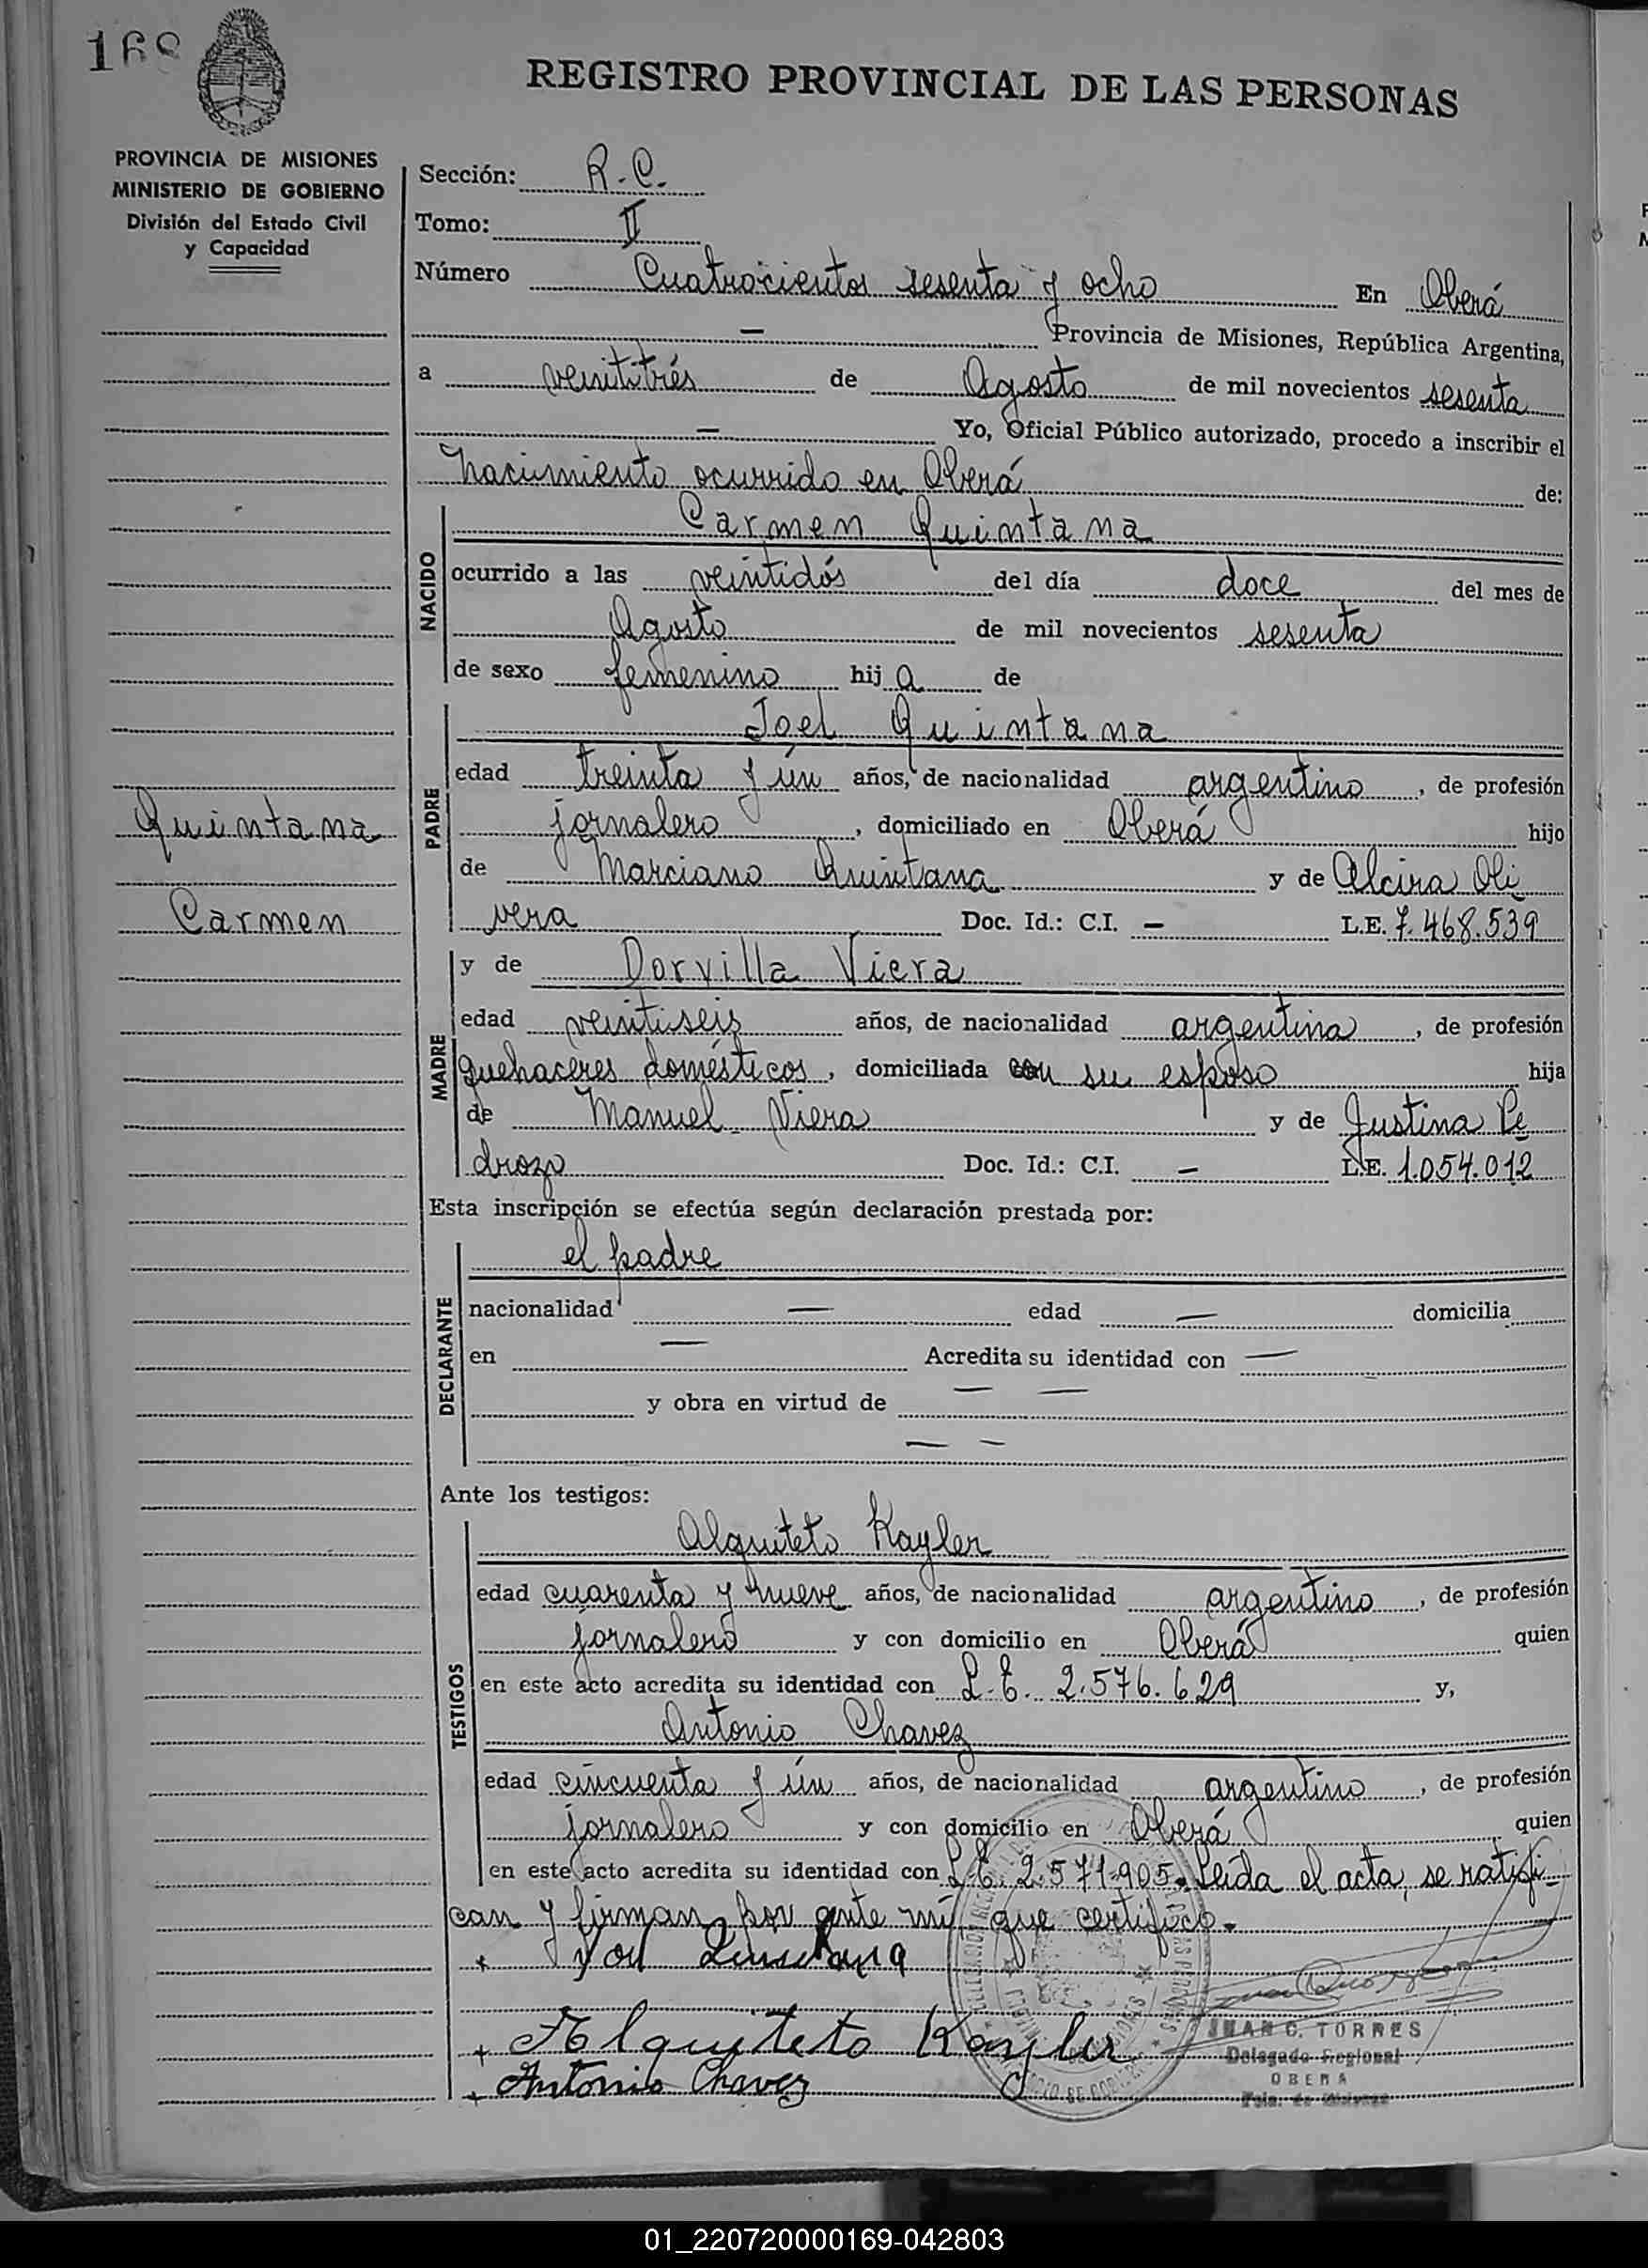 168
REGISTRO PROVINCIAL DE LAS PERSONAS
PROVINCIA DE MISIONES
MINISTERIO DE GOBIERNO
División del Estado Civil
y Capacidad
Sección: R.C.
Tomo: II
Número Cuatrocientos sesenta y ocho En Oberá
— Provincia de Misiones, República Argentina,
a veintitrés de Agosto de mil novecientos sesenta
— Yo, Oficial Público autorizado, procedo a inscribir el
Nacimiento ocurrido en Oberá de:
NACIDO
Carmen Quintana
ocurrido a las veintidós del día doce del mes de
Agosto de mil novecientos sesenta
de sexo femenino hija de
PADRE
Joel Quintana
edad treinta y ún años, de nacionalidad argentino, de profesión
jornalero, domiciliado en Oberá hijo
de Marciano Quintana y de Alcira Oli
vera Doc. Id.: C.I. — L.E. 7.468.539
Quintana
Carmen
MADRE
y de Dorvilla Viera
edad veintiseis años, de nacionalidad argentina, de profesión
quehaceres domésticos, domiciliada con su esposo hija
de Manuel Viera y de Justina Pe
drozo Doc. Id.: C.I. — L.E. 1.054.012
Esta inscripción se efectúa según declaración prestada por:
DECLARANTE
el padre
nacionalidad — edad — domicilia
en — Acredita su identidad con —
y obra en virtud de — —
— —
Ante los testigos:
TESTIGOS
Alquiteto Kayler
edad cuarenta y nueve años, de nacionalidad argentino, de profesión
jornalero y con domicilio en Oberá quien
en este acto acredita su identidad con L.E. 2.576.629 y,
Antonio Chavez
edad cincuenta y ún años, de nacionalidad argentino, de profesión
jornalero y con domicilio en Oberá quien
en este acto acredita su identidad con L.E. 2.571.905. Leída el acta, se ratifi-
can y firman por ante mí que certifico.-
+ Quintana
+ Alquiteto Kayler
+ Antonio Chavez
JUAN C. TORRES
Delegado Regional
OBERA
Pcia. de Misiones
01_220720000169-042803